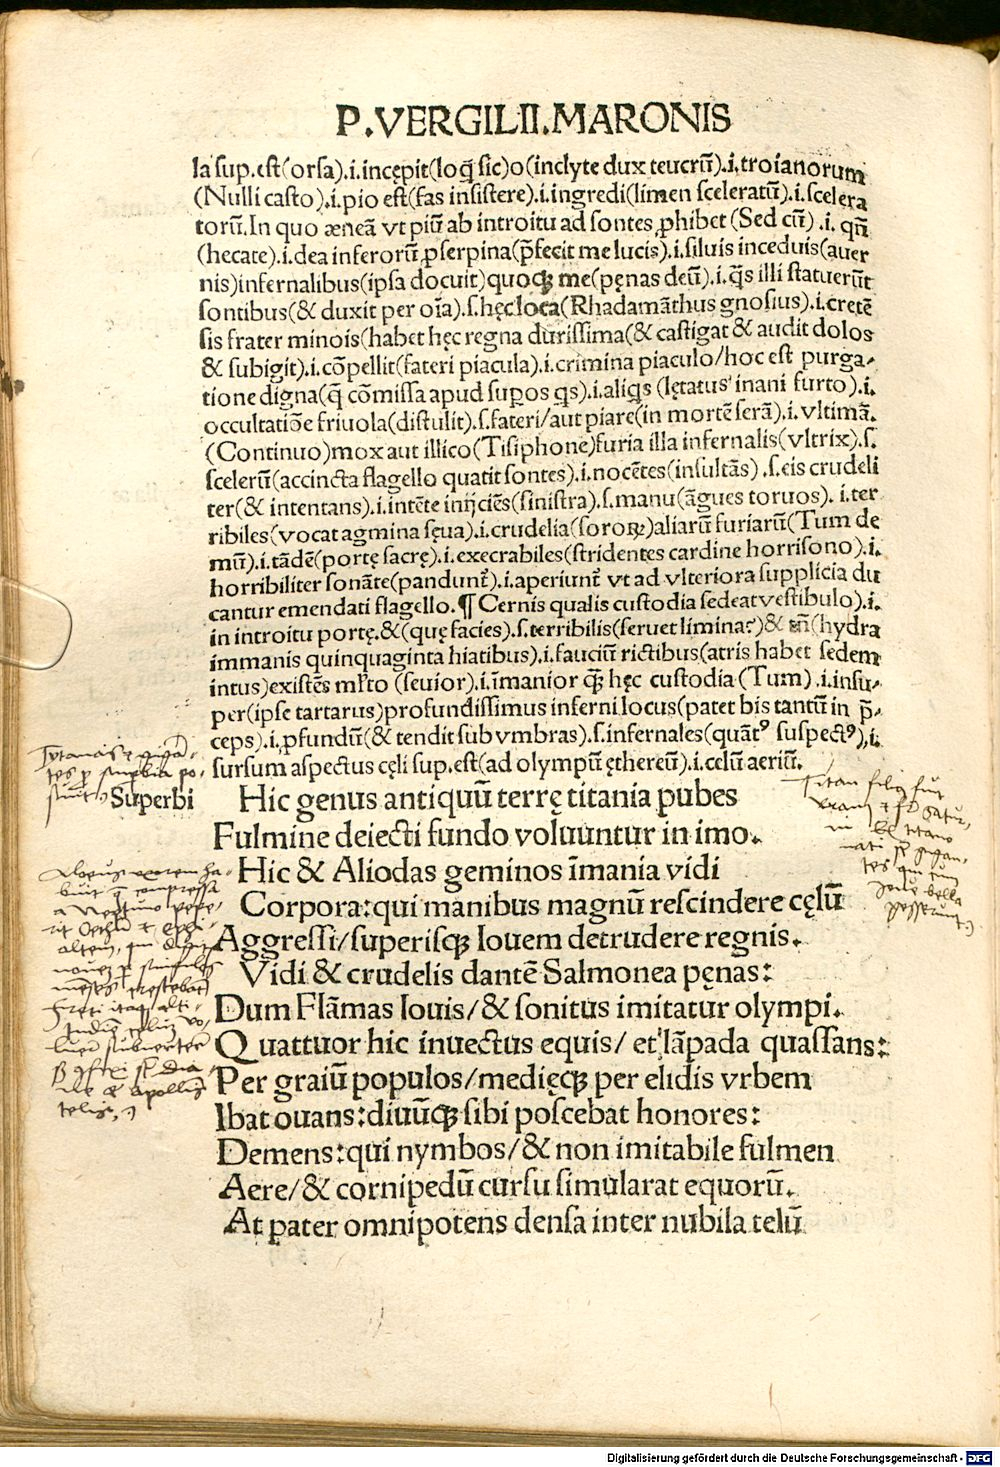 P.VERGILII.MARONIS
la sup.est(orsa).i.incępit(loq̄ sic)o(inclyte dux teucrū).i.troianorum
(Nulli casto).i.pio est(fas insistere).i.ingredi(limen sceleratū).i.scelera
torū.In quo æneā vt piū ab introitu ad sontes ꝓhibet(Sed cū).i.qn̄
(hecate).i.dea inferorū ꝓserpina(p̄fecit me lucis).i.siluis inceduis(auer
nis)infernalibus(ipsa docuit)quoqꝫ me(pęnas deū).i.q̄s illi statuerūt
sontibus(& duxit per oīa).s.hęc loca(Rhadamāthus gnosius).i.cretē
sis frater minois(habet hęc regna durissima(& castigat & audit dolos
& subigit).i.cōpellit(fateri piacula).i.crimina piaculo/hoc est purga-
tione digna(q̄ cōmissa apud suꝑos qs).i.aliqs(lętatus inani furto).i.
occultatiōe friuola(distulit).s.fateri/aut piare(in mortē serā).i.vltimā.
(Continuo)mox aut illico(Tisiphone)furia illa infernalis(vltrix).s.
scelerū(accincta flagello quatit sontes).i.nocētes(insultās).s.eis crudeli
ter(& intentans).i.intēte inijciēs(sinistra).s.manu(āgues toruos).i.ter
ribiles(vocat agmina sęua).i.crudelia(sororꝝ)aliarū furiarū(Tum de
mū).i.tādē(portę sacrę).i.execrabiles(stridentes cardine horrisono).i.
horribiliter sonāte(pandunt̄).i.aperiunt̄ vt ad vlteriora supplicia du
cantur emendati flagello.¶ Cernis qualis custodia sedeat vestibulo).i.
in introitu portę.&(quę facies).s.terribilis(seruet limina?)& tn̄(hydra
immanis quinquaginta hiatibus).i.fauciū rictibus(atris habet sedem
intus)existēs ml̄to (seuior).i.īmanior q̄ꝫ hęc custodia(Tum).i.insu-
per(ipse tartarus)profundissimus inferni locus(patet bis tantū in p̄-
ceps).i.ꝓfundū(& tendit sub vmbras).s.infernales(quātꝰ suspectꝰ),i.
sursum aspectus cęli sup.est(ad olympū ęthereū).i.celū aeriū.
Superbi Hic genus antiquū terrę titania pubes
Fulmine deiecti fundo voluuntur in imo.
Hic & Aliodas geminos īmania vidi
Corpora:qui manibus magnū rescindere cęlū
Aggressi/superisqꝫ Iouem detrudere regnis.
Vidi & crudelis dantē Salmonea pęnas:
Dum Flāmas Iouis/& sonitus imitatur olympi.
Quattuor hic inuectus equis/ et lāpada quassans:
Per graiū populos/medięqꝫ per elidis vrbem
Ibat ouans:diuūqꝫ sibi poscebat honores:
Demens:qui nymbos/& non imitabile fulmen
Aere/& cornipedū cursu simularat equorū.
At pater omnipotens densa inter nubila telū
Titan filiꝰ fuit
Digitalisierung gefördert durch die Deutsche Forschungsgemeinschaft - DFG